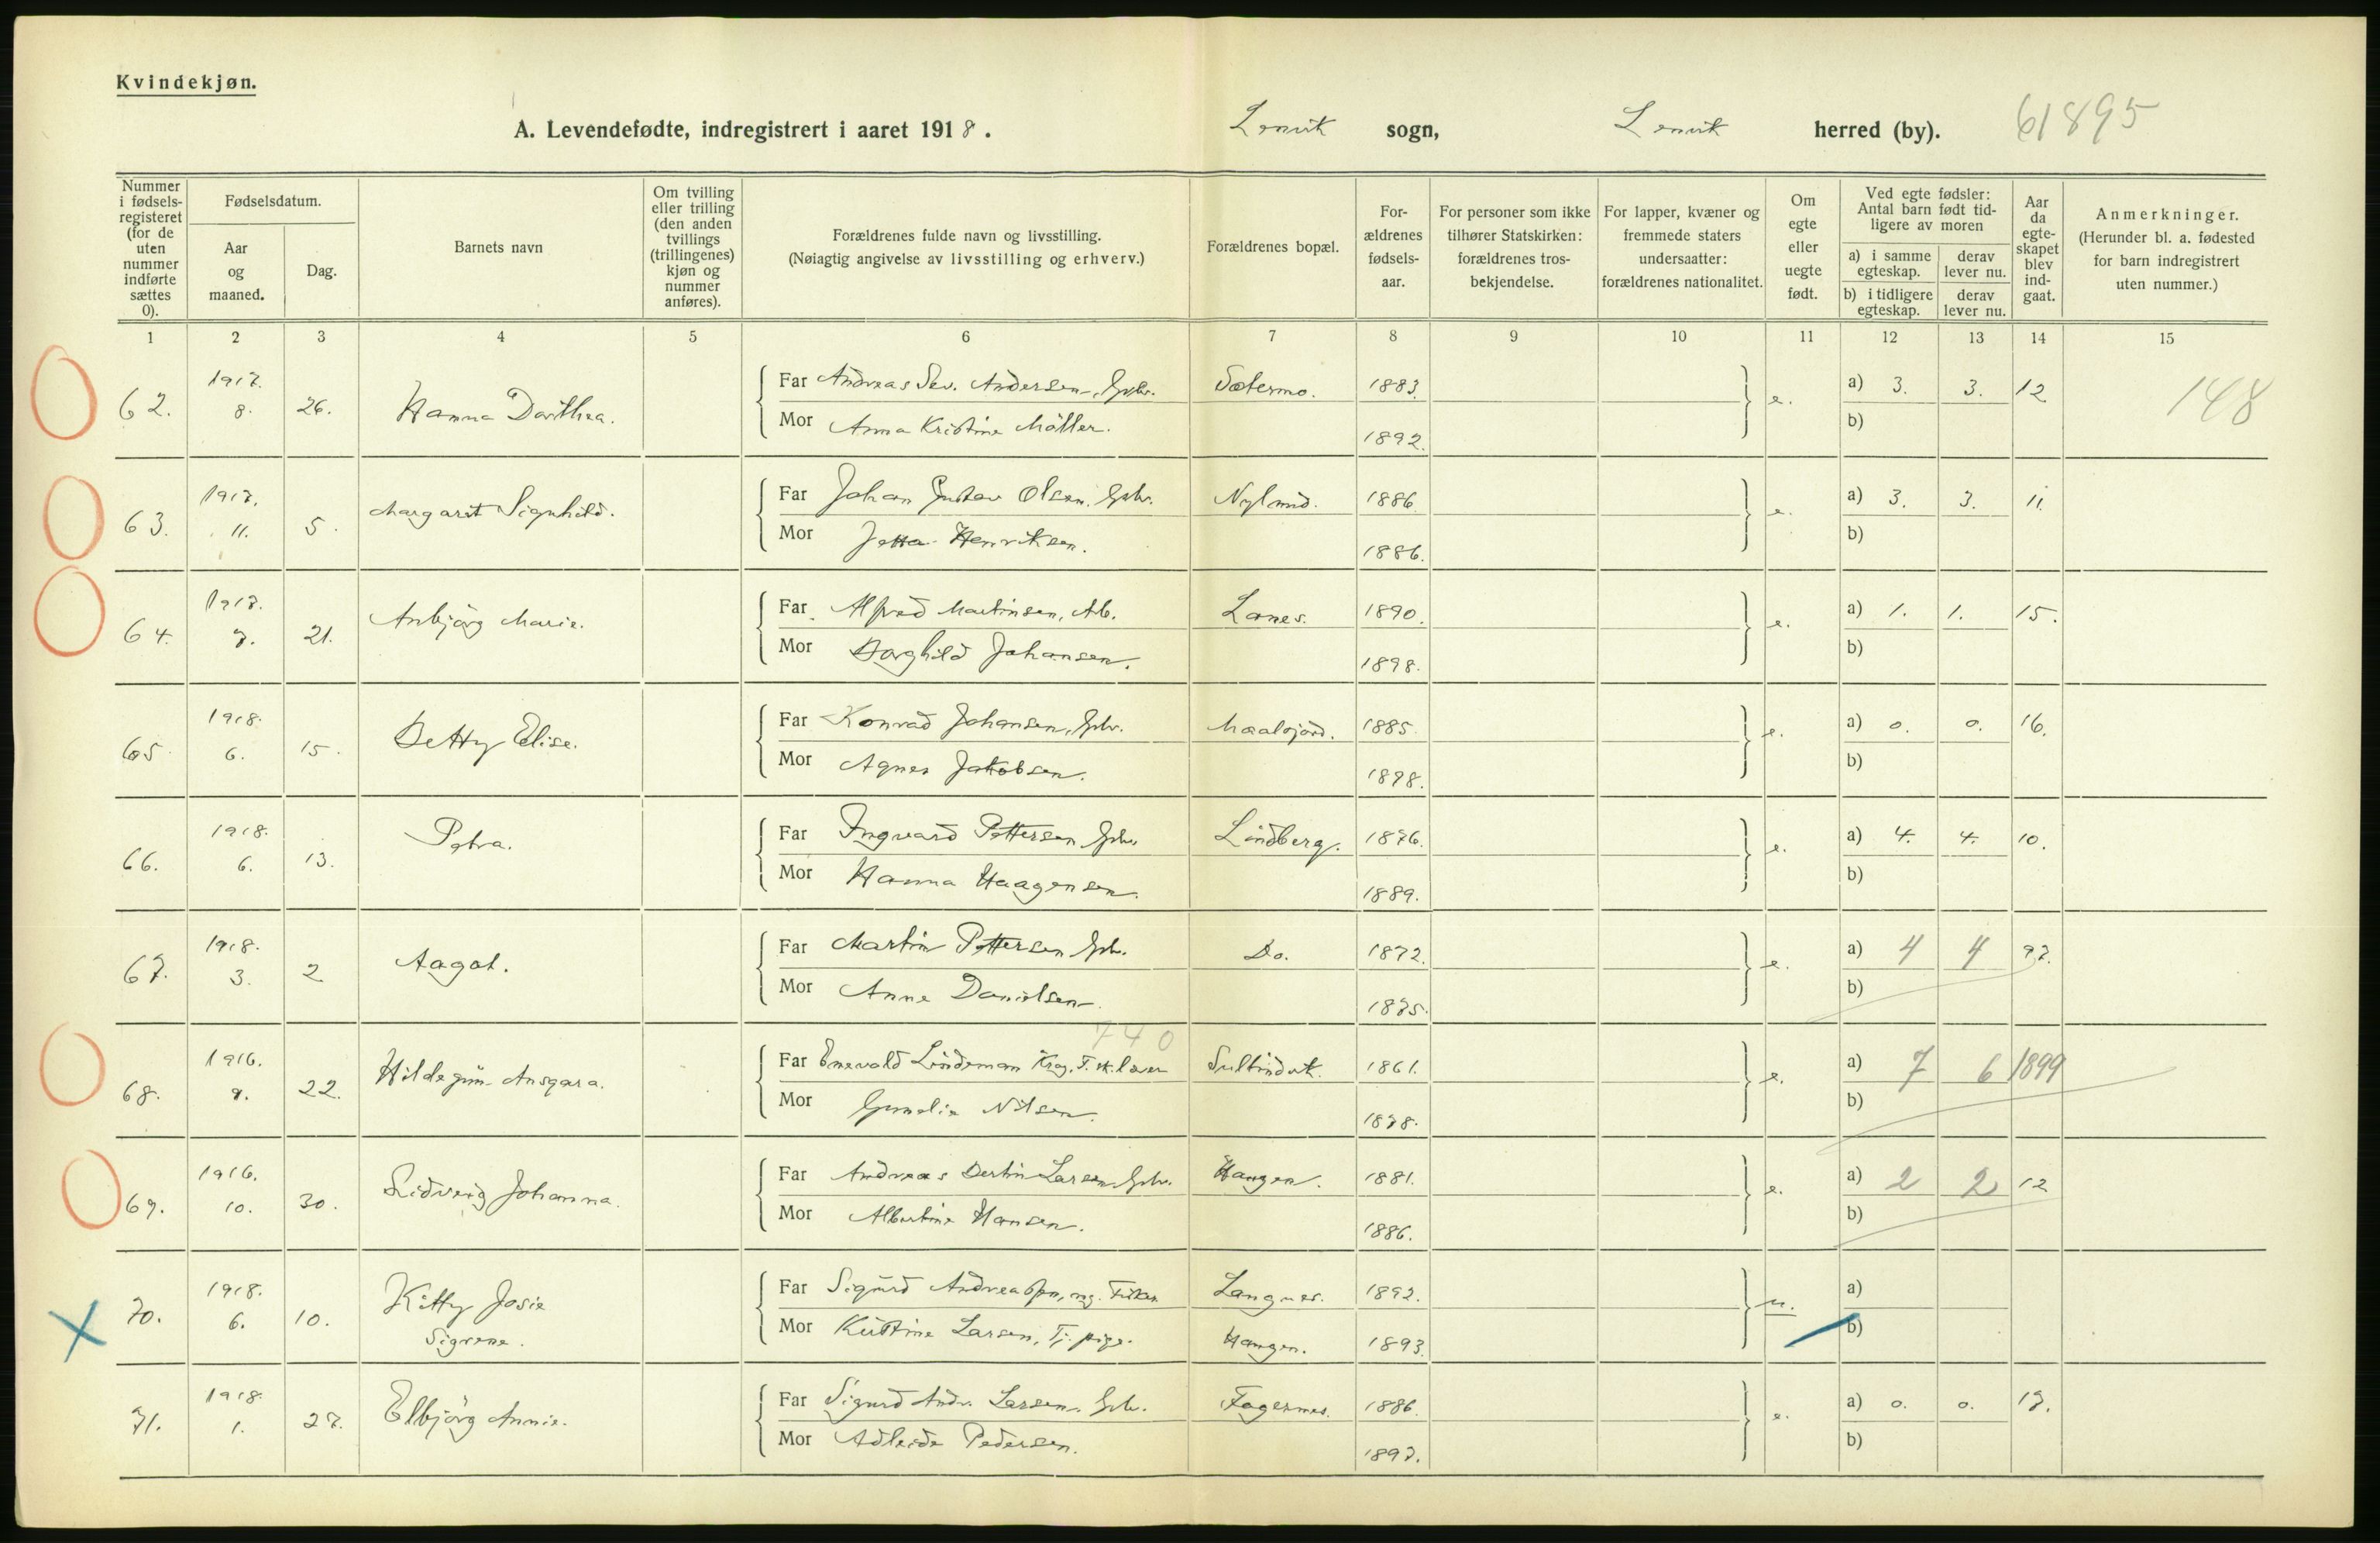 Kvindekjøn.
A. Levendefødte, indregistrert i aaret 1918. Lenvik sogn, Lenvik herred (by). 61895
Nummer i fødsels-registeret (for de uten nummer indførte sættes 0).
Fødselsdatum.
Aar og maaned.
Dag.
Barnets navn
Om tvilling eller trilling (den anden tvillings (trillingenes) kjøn og nummer anføres).
Forældrenes fulde navn og livsstilling.
(Nøiagtig angivelse av livsstilling og erhverv.)
Forældrenes bopæl.
For-ældrenes fødsels-aar.
For personer som ikke tilhører Statskirken: forældrenes tros-bekjendelse.
For lapper, kvæner og fremmede staters undersaatter: forældrenes nationalitet.
Om egte eller uegte født.
Ved egte fødsler: Antal barn født tid-ligere av moren
a) i samme egteskap.
derav lever nu.
b) i tidligere egteskap.
derav lever nu.
Aar da egte-skapet blev ind-gaat.
Anmerkninger.
(Herunder bl. a. fødested for barn indregistrert uten nummer.)
1 2 3 4 5 6 7 8 9 10 11 12 13 14 15
62. 1917. 8. 26. Hanna Dorthea. Far Andreas Sev. Andersen, Gbr. Sætermo. 1883. e. a) 3. 3. 12 148
Mor Anna Kristine Møller. 1892. b)
63. 1917. 11. 5. Margaret Signhild. Far Johan Gustav Olsen. Gbr. Nylund. 1886. e. a) 3. 3. 11.
Mor Jetta Henriksen. 1886. b)
64. 1917. 7. 21. Anbjörg Marie. Far Alfred Martinsen, Arb. Lanes. 1890. e. a) 1. 1. 15.
Mor Borghild Johansen. 1898. b)
65. 1918. 6. 15. Betty Elise. Far Konrad Johansen, Gbr. Maalsjord. 1885. e. a) 0. 0. 16.
Mor Agnes Jakobsen. 1898. b)
66. 1918. 6. 13. Petra. Far Ingvard Pettersen Gbr. Lindberg. 1876. e. a) 4. 4. 10.
Mor Hanna Haagensen. 1889. b)
67. 1918. 3. 2 Aagot. Far Martin Pettersen Gbr. Do. 1872. e. a) 4 4 97.
Mor Anne Danielsen. 1875. b)
740
68. 1916. 22. Hildegun Ansgara. Far Enevald Lindeman Krog. Sultindvik. 1861. e. a) 7 6 1899
Mor Gunelie Nilsen. 1878. b)
69. 1916. 10. 30. Lidveig Johanna. Far Andreas Bertin Larsen Gbr. Haugen. 1881. e. a) 2 2 12
Mor Albertine Hansen. 1886. b)
70. 1918. 6. 10. Kitty Josie Far Sigurd Andreassen, ug. Fisker Langnes. 1892. u. a)
Sigrene. Mor Kristine Larsen, Tj. pige. Haugen. 1893. b)
71. 1918. 1. 27. Elbjörg Annie. Far Sigurd Andr. Larsen. Gbr. Fagernes. 1886. e. a) 0. 0. 17.
Mor Adleide Pedersen. 1897. b)